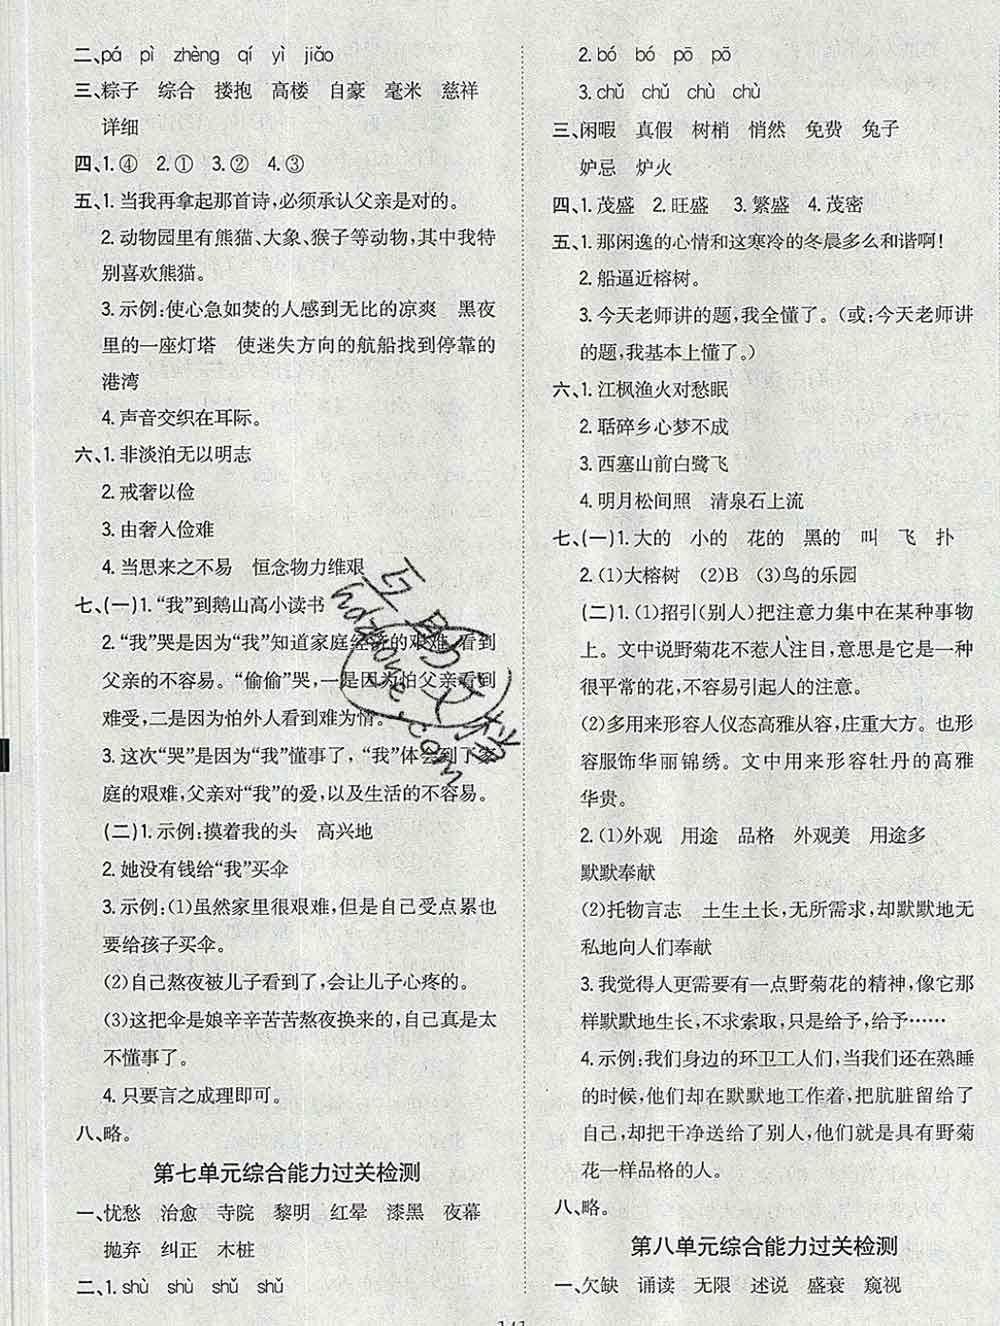 二、pá pì zhèng qí yì jiǎo
三、粽子 综合 搂抱 高楼 自豪 毫米 慈祥
详细
四、1.④ 2.① 3.② 4.③
五、1.当我再拿起那首诗,必须承认父亲是对的。
2.动物园里有熊猫、大象、猴子等动物,其中我特
别喜欢熊猫。
3.示例:使心急如焚的人感到无比的凉爽 黑夜
里的一座灯塔 使迷失方向的航船找到停靠的
港湾
4.声音交织在耳际。
六、1.非淡泊无以明志
2.戒奢以俭
3.由奢入俭难
4.当思来之不易 恒念物力维艰
七、(一)1.“我”到鹅山高小读书
2.“我”哭是因为“我”知道家庭经济的艰难,看到
父亲的不容易。“偷偷”哭,一是因为怕父亲看到
难受,二是因为怕外人看到难为情。
3.这次“哭”是因为“我”懂事了,“我”体会到了家
庭的艰难,父亲对“我”的爱,以及生活的不容易。
(二)1.示例:摸着我的头 高兴地
2.她没有钱给“我”买伞
3.示例:(1)虽然家里很艰难,但是自己受点累也
要给孩子买伞。
(2)自己熬夜被儿子看到了,会让儿子心疼的。
(3)这把伞是娘辛辛苦苦熬夜换来的,自己真是太
不懂事了。
4.只要言之成理即可。
八、略。
第七单元综合能力过关检测
一、忧愁 治愈 寺院 黎明 红晕 漆黑 夜幕
抛弃 纠正 木桩
二、1.shù shù shǔ shǔ
2.bó bó pō pō
3.chǔ chǔ chù chù
三、闲暇 真假 树梢 悄然 免费 兔子
妒忌 炉火
四、1.茂盛 2.旺盛 3.繁盛 4.茂密
五、1.那闲逸的心情和这寒冷的冬晨多么和谐啊!
2.船逼近榕树。
3.今天老师讲的题,我全懂了。(或:今天老师讲
的题,我基本上懂了。)
六、1.江枫渔火对愁眠
2.聒碎乡心梦不成
3.西塞山前白鹭飞
4.明月松间照 清泉石上流
七、(一)1.大的 小的 花的 黑的 叫 飞 扑
2.(1)大榕树 (2)B (3)鸟的乐园
(二)1.(1)招引(别人)把注意力集中在某种事物
上。文中说野菊花不惹人注目,意思是它是一种
很平常的花,不容易引起人的注意。
(2)多用来形容人仪态高雅从容,庄重大方。也形
容服饰华丽锦绣。文中用来形容牡丹的高雅
华贵。
2.(1)外观 用途 品格 外观美 用途多
默默奉献
(2)托物言志 土生土长,无所需求,却默默地无
私地向人们奉献
3.我觉得人更需要有一点野菊花的精神,像它那
样默默地生长,不求索取,只是给予,给予……
4.示例:我们身边的环卫工人们,当我们还在熟睡
的时候,他们就已经在默默地工作着,把肮脏留给了
自己,却把干净送给了别人,他们就是具有野菊
花一样品格的人。
八、略。
第八单元综合能力过关检测
一、欠缺 诵读 无限 述说 盛衰 窥视
141